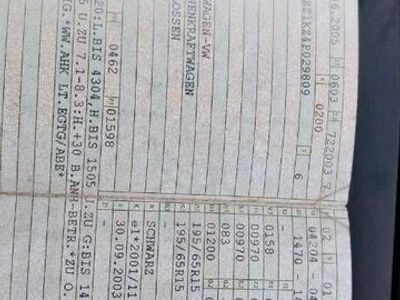 6.2005 0603 722003 7
ZZZ1KZ4P029809 0200
6
WAGEN-VW
ENKRAFTWAGEN
LOSSEN
0462 01598
20:L.BIS 4304,H.BIS 1505 U.ZU G:BIS 14
U.ZU 7.1-8.3:H.+30 B.ANH-BETR.*ZU O.
KG.*WW.AHK LT.EGTG/ABE*
02 01
04204 - 04
1470 - 14
0158
00970
00970
083
01200
195/65R15
195/65R15
SCHWARZ
e1*2001/11
30.09.2003